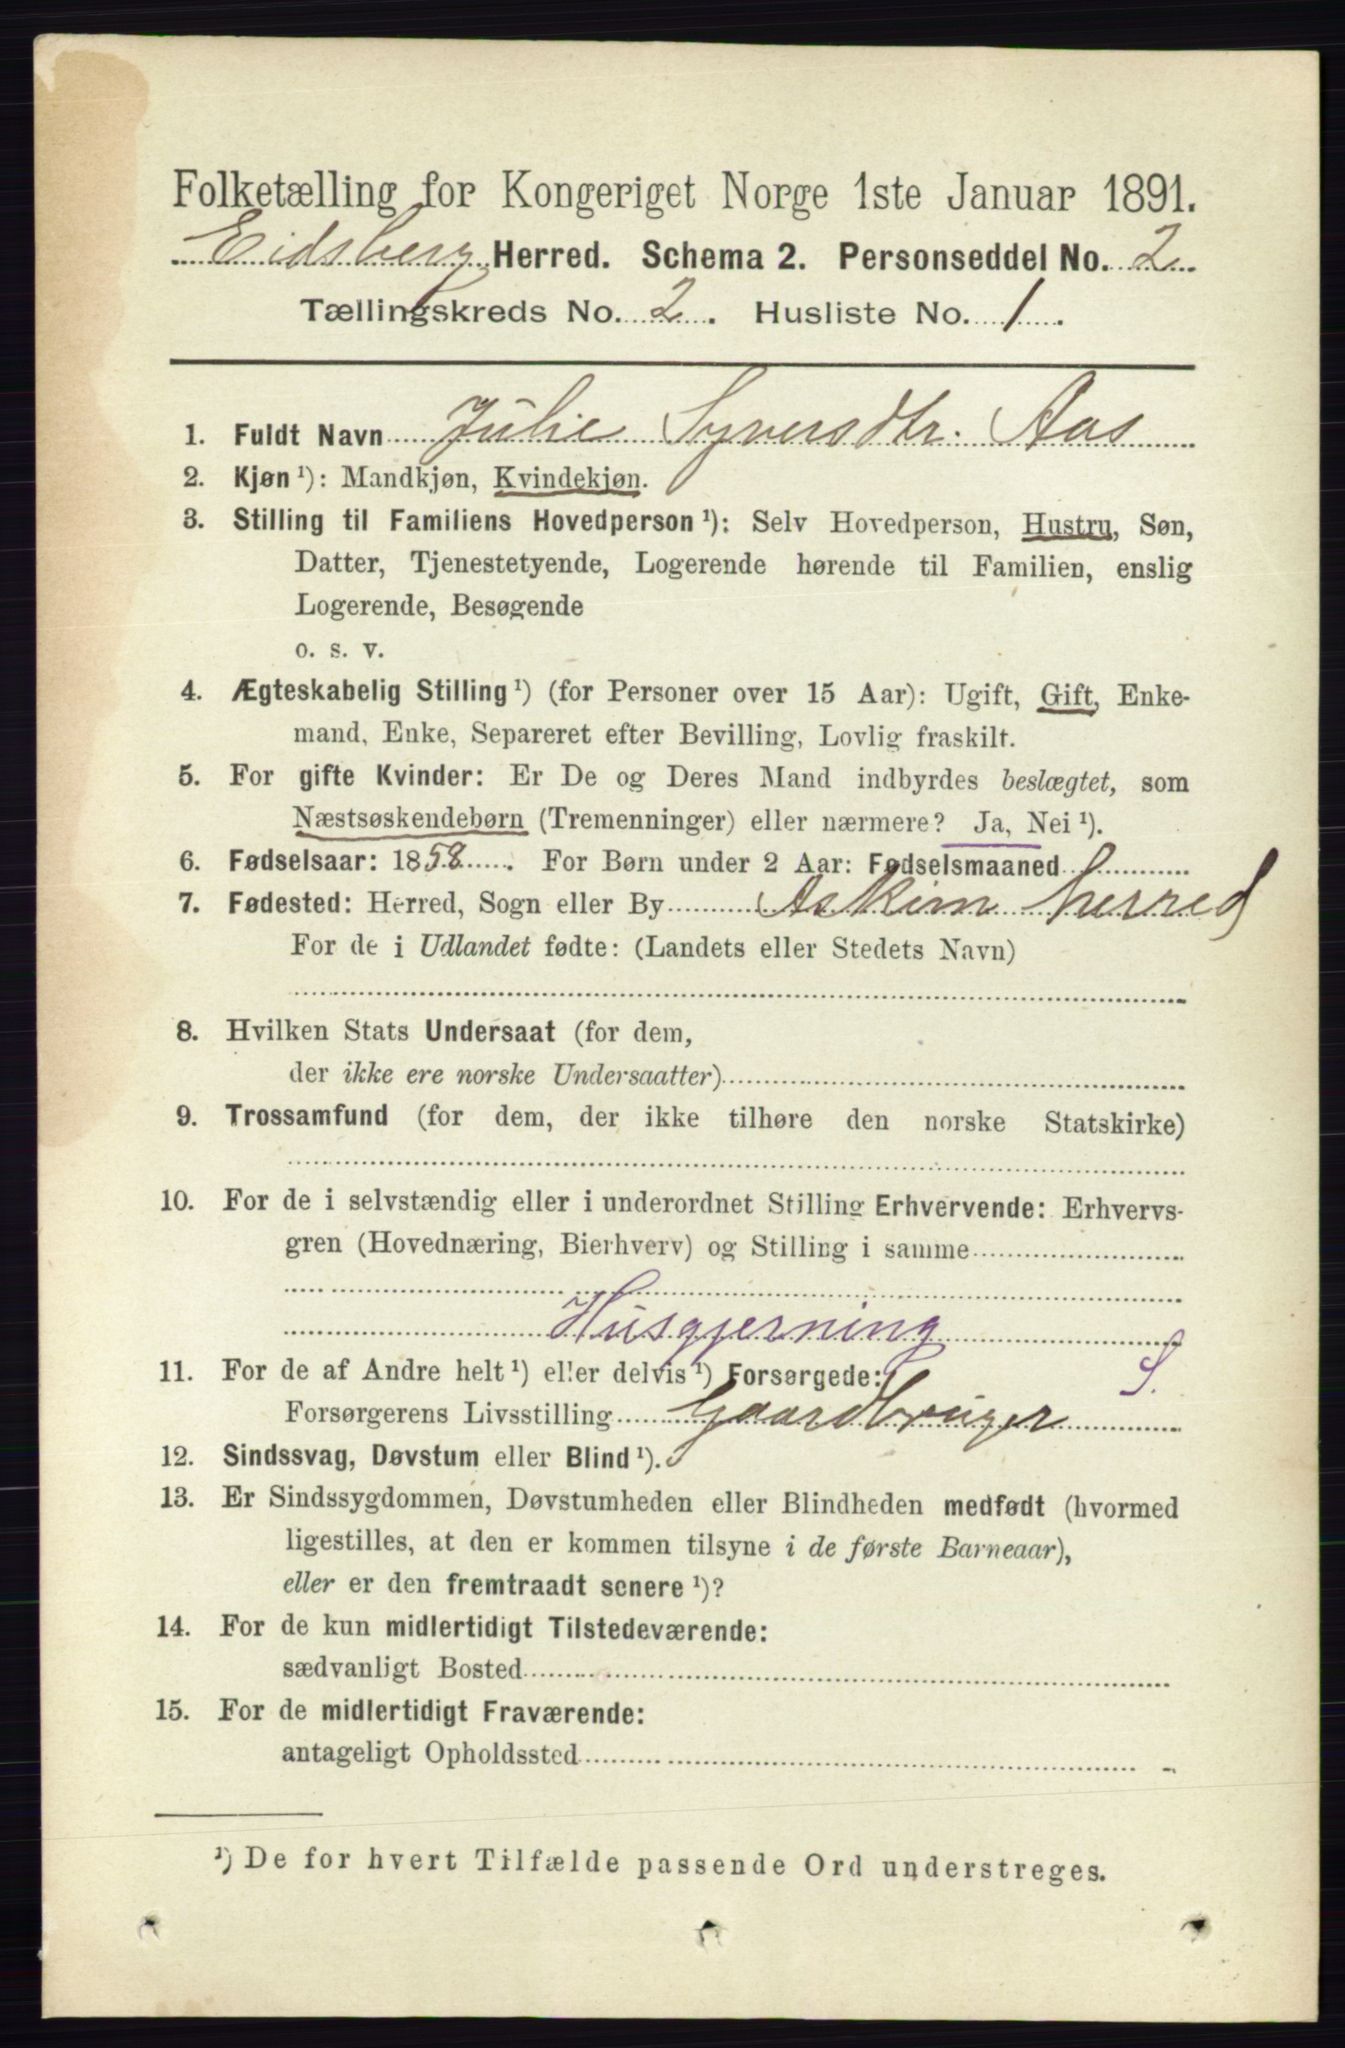 Folketælling for Kongeriget Norge 1ste Januar 1891.
Eidsberg Herred. Schema 2. Personseddel No. 2
Tællingskreds No. 2. Husliste No. 1.
1. Fuldt Navn Julie Syversdtr. Aas
2. Kjøn ¹): Mandkjøn, Kvindekjøn.
3. Stilling til Familiens Hovedperson ¹): Selv Hovedperson, Hustru, Søn,
Datter, Tjenestetyende, Logerende hørende til Familien, enslig
Logerende, Besøgende
o. s. v.
4. Ægteskabelig Stilling ¹) (for Personer over 15 Aar): Ugift, Gift, Enke-
mand, Enke, Separeret efter Bevilling, Lovlig fraskilt.
5. For gifte Kvinder: Er De og Deres Mand indbyrdes beslægtet, som
Næstsøskendebørn (Tremenninger) eller nærmere? Ja, Nei ¹).
6. Fødselsaar: 1858. For Børn under 2 Aar: Fødselsmaaned
7. Fødested: Herred, Sogn eller By Askim herred
For de i Udlandet fødte: (Landets eller Stedets Navn)
8. Hvilken Stats Undersaat (for dem,
der ikke ere norske Undersaatter)
9. Trossamfund (for dem, der ikke tilhøre den norske Statskirke)
10. For de i selvstændig eller i underordnet Stilling Erhvervende: Erhvervs-
gren (Hovednæring, Bierhverv) og Stilling i samme
Husgjerning
11. For de af Andre helt ¹) eller delvis ¹) Forsørgede: S.
Forsørgerens Livsstilling Gaardbruger
12. Sindssvag, Døvstum eller Blind ¹).
13. Er Sindssygdommen, Døvstumheden eller Blindheden medfødt (hvormed
ligestilles, at den er kommen tilsyne i de første Barneaar),
eller er den fremtraadt senere ¹)?
14. For de kun midlertidigt Tilstedeværende:
sædvanligt Bosted
15. For de midlertidigt Fraværende:
antageligt Opholdssted
¹) De for hvert Tilfælde passende Ord understreges.